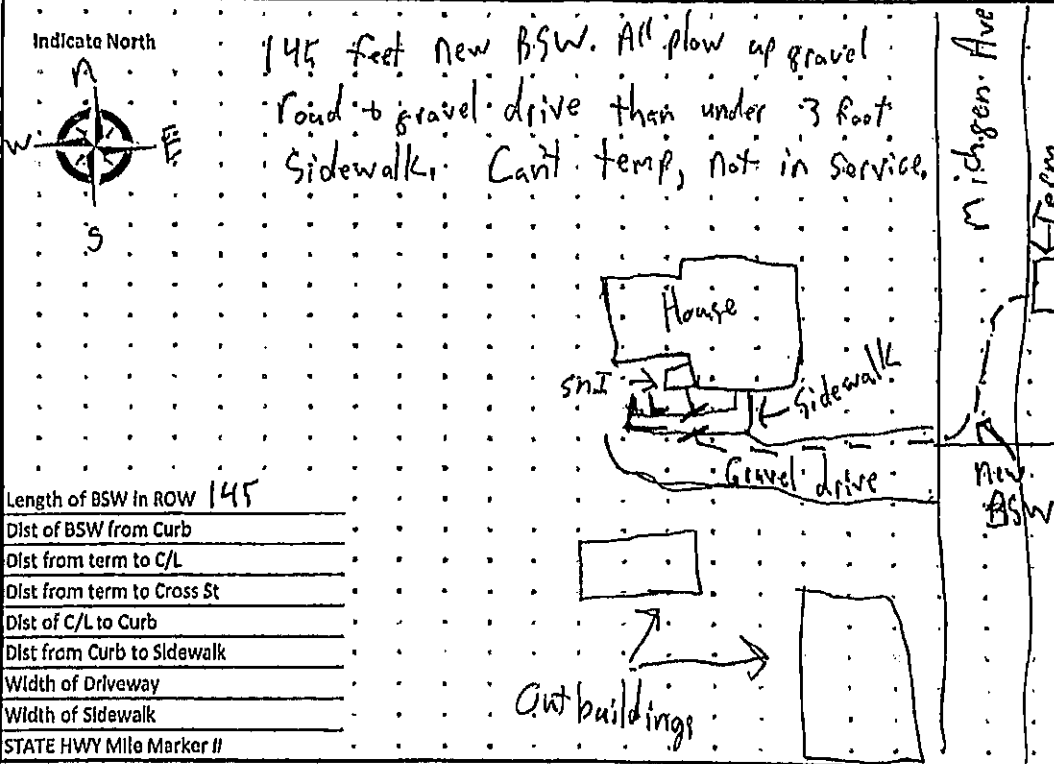 Indicate North
N
W
E
S
145 feet new BSW. All plow up gravel
road to gravel drive then under 3 foot
sidewalk. Can't temp, not in service.
Michigen Ave
Term
House
SNI
Sidewalk
Gravel drive
new
BSW
Out buildings
Length of BSW in ROW 145
Dist of BSW from Curb
Dist from term to C/L
Dist from term to Cross St
Dist of C/L to Curb
Dist from Curb to Sidewalk
Width of Driveway
Width of Sidewalk
STATE HWY Mile Marker #